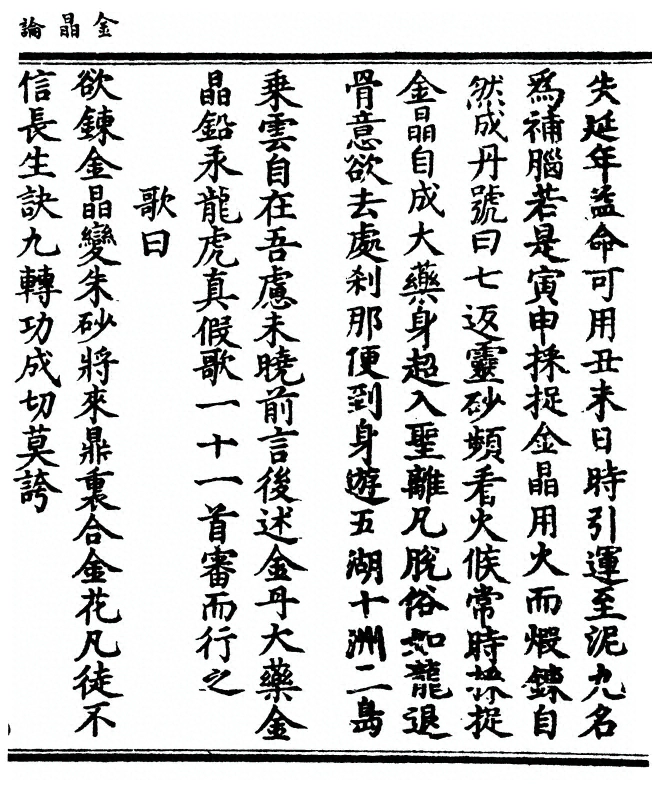 金晶論
失延年益命可用丑未日時引運至泥丸名
為補腦若是寅申採捉金晶用火而煆鍊自
然成丹號曰七返靈砂頻看火候常時採捉
金晶自成大藥身超入聖離凡脫俗如龍退
骨意欲去處剎那便到身遊五湖十洲二島
乗雲自在吾慮未曉前言後述金丹大藥金
晶鉛汞龍虎真假歌一十一首審而行之
歌曰
欲鍊金晶變朱砂將來鼎裏合金花凡徒不
信長生訣九轉功成切莫誇